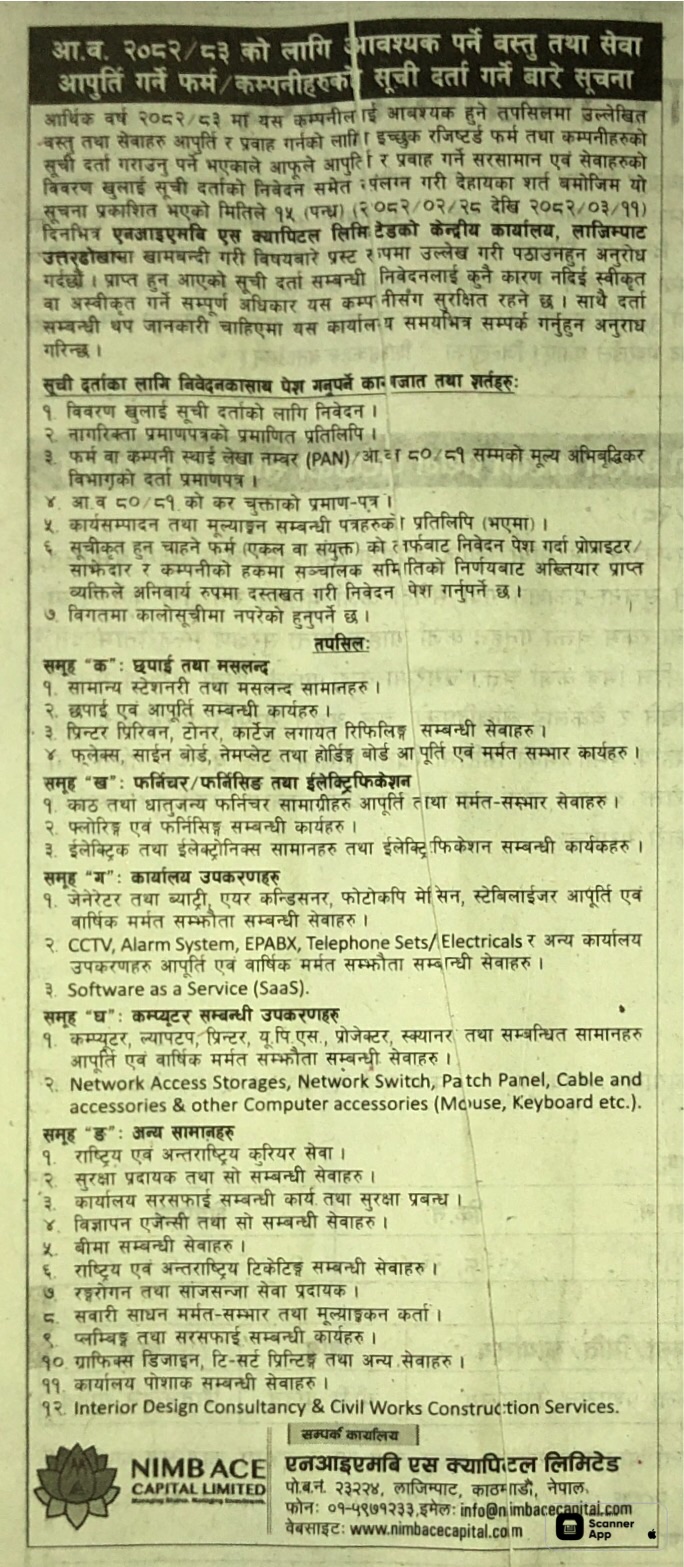 आ.व. २०८२/८३ को लागि आवश्यक पर्ने वस्तु तथा सेवा
आपुर्ति गर्ने फर्म/कम्पनीहरुको सूची दर्ता गर्ने बारे सूचना
आर्थिक वर्ष २०८२/८३ मा यस कम्पनीलाई आवश्यक हुने तपसिलमा उल्लेखित
वस्तु तथा सेवाहरु आपुर्ति र प्रवाह गर्नको लागि इच्छुक रजिष्टर्ड फर्म तथा कम्पनीहरुको
सूची दर्ता गराउनु पर्ने भएकाले आफूले आपुर्ति र प्रवाह गर्ने सरसामान एवं सेवाहरुको
विवरण खुलाई सूची दर्ताको निवेदन समेत संलग्न गरी देहायका शर्त बमोजिम यो
सूचना प्रकाशित भएको मितिले १५ (पन्ध्र) (२०८२/०२/२८ देखि २०८२/०३/११)
दिनभित्र एनआइएमबि एस क्यापिटल लिमिटेडको केन्द्रीय कार्यालय, लाजिम्पाट
उत्तरढोखामा खामबन्दी गरी विषयबारे प्रस्ट रुपमा उल्लेख गरी पठाउनहुन अनुरोध
गर्दछौं । प्राप्त हुन आएको सूची दर्ता सम्बन्धी निवेदनलाई कुनै कारण नदिई स्वीकृत
वा अस्वीकृत गर्ने सम्पूर्ण अधिकार यस कम्पनीसंग सुरक्षित रहने छ । साथै दर्ता
सम्बन्धी थप जानकारी चाहिएमा यस कार्यालय समयभित्र सम्पर्क गर्नुहुन अनुराध
गरिन्छ ।
सूची दर्ताका लागि निवेदनकासाथ पेश गनुपर्ने कागजात तथा शर्तहरु:
१. विवरण खुलाई सूची दर्ताको लागि निवेदन ।
२. नागरिक्ता प्रमाणपत्रको प्रमाणित प्रतिलिपि ।
३. फर्म वा कम्पनी स्थाई लेखा नम्बर (PAN)/आ.व ८०/८१ सम्मको मूल्य अभिबृद्धिकर
विभागको दर्ता प्रमाणपत्र ।
४. आ.व ८०/८१ को कर चुक्ताको प्रमाण-पत्र ।
५. कार्यसम्पादन तथा मूल्याङ्कन सम्बन्धी पत्रहरुको प्रतिलिपि (भएमा) ।
६. सूचीकृत हुन चाहने फर्म (एकल वा संयुक्त) को तर्फबाट निवेदन पेश गर्दा प्रोप्राइटर/
साझेदार र कम्पनीको हकमा सञ्चालक समितिको निर्णयबाट अख्तियार प्राप्त
व्यक्तिले अनिवार्य रुपमा दस्तखत गरी निवेदन पेश गर्नुपर्ने छ ।
७. विगतमा कालोसूचीमा नपरेको हुनुपर्ने छ ।
तपसिल:
समूह "क": छपाई तथा मसलन्द
१. सामान्य स्टेशनरी तथा मसलन्द सामानहरु ।
२. छपाई एवं आपूर्ति सम्बन्धी कार्यहरु ।
३. प्रिन्टर प्रिरिवन, टोनर, कार्टेज लगायत रिफिलिङ्ग सम्बन्धी सेवाहरु ।
४. फ्लेक्स, साईन बोर्ड, नेमप्लेट तथा होर्डिङ्ग बोर्ड आपूर्ति एवं मर्मत सम्भार कार्यहरु ।
समूह "ख": फर्निचर/फर्निसिङ तथा ईलेक्ट्रिफिकेशन
१. काठ तथा धातुजन्य फर्निचर सामाग्रीहरु आपूर्ति तथा मर्मत-सम्भार सेवाहरु ।
२. फ्लोरिङ्ग एवं फर्निसिङ्ग सम्बन्धी कार्यहरु ।
३. ईलेक्ट्रिक तथा ईलेक्ट्रोनिक्स सामानहरु तथा ईलेक्ट्रिफिकेशन सम्बन्धी कार्यकहरु ।
समूह "ग": कार्यालय उपकरणहरु
१. जेनेरेटर तथा ब्याट्री, एयर कन्डिसनर, फोटोकपि मेसिन, स्टेबिलाईजर आपूर्ति एवं
वार्षिक मर्मत सम्झौता सम्बन्धी सेवाहरु ।
२. CCTV, Alarm System, EPABX, Telephone Sets/Electricals र अन्य कार्यालय
उपकरणहरु आपूर्ति एवं वार्षिक मर्मत सम्झौता सम्बन्धी सेवाहरु ।
३. Software as a Service (SaaS).
समूह "घ": कम्प्यूटर सम्बन्धी उपकरणहरु
१. कम्प्यूटर, ल्यापटप, प्रिन्टर, यू.पि.एस., प्रोजेक्टर, स्क्यानर तथा सम्बन्धित सामानहरु
आपूर्ति एवं वार्षिक मर्मत सम्झौता सम्बन्धी सेवाहरु ।
२. Network Access Storages, Network Switch, Patch Panel, Cable and
accessories & other Computer accessories (Mouse, Keyboard etc.).
समूह "ङ": अन्य सामानहरु
१. राष्ट्रिय एवं अन्तराष्ट्रिय कुरियर सेवा ।
२. सुरक्षा प्रदायक तथा सो सम्बन्धी सेवाहरु ।
३. कार्यालय सरसफाई सम्बन्धी कार्य तथा सुरक्षा प्रबन्ध ।
४. विज्ञापन एजेन्सी तथा सो सम्बन्धी सेवाहरु ।
५. बीमा सम्बन्धी सेवाहरु ।
६. राष्ट्रिय एवं अन्तराष्ट्रिय टिकेटिङ्ग सम्बन्धी सेवाहरु ।
७. रङ्गरोगन तथा साजसन्जा सेवा प्रदायक ।
८. सवारी साधन मर्मत-सम्भार तथा मूल्याङ्कन कर्ता ।
९. प्लम्बिङ्ग तथा सरसफाई सम्बन्धी कार्यहरु ।
१०. ग्राफिक्स डिजाइन, टि-सर्ट प्रिन्टिङ्ग तथा अन्य सेवाहरु ।
११. कार्यालय पोशाक सम्बन्धी सेवाहरु ।
१२. Interior Design Consultancy & Civil Works Construction Services.
सम्पर्क कार्यालय
NIMB ACE
CAPITAL LIMITED
Managing Shares. Managing Investments.
एनआइएमबि एस क्यापिटल लिमिटेड
पो.ब.नं. २३२२४, लाजिम्पाट, काठमाडौं, नेपाल
फोनः ०१-५९७१२३३,इमेलः info@nimbacecapital.com
वेबसाइटः www.nimbacecapital.com
Scanner
App